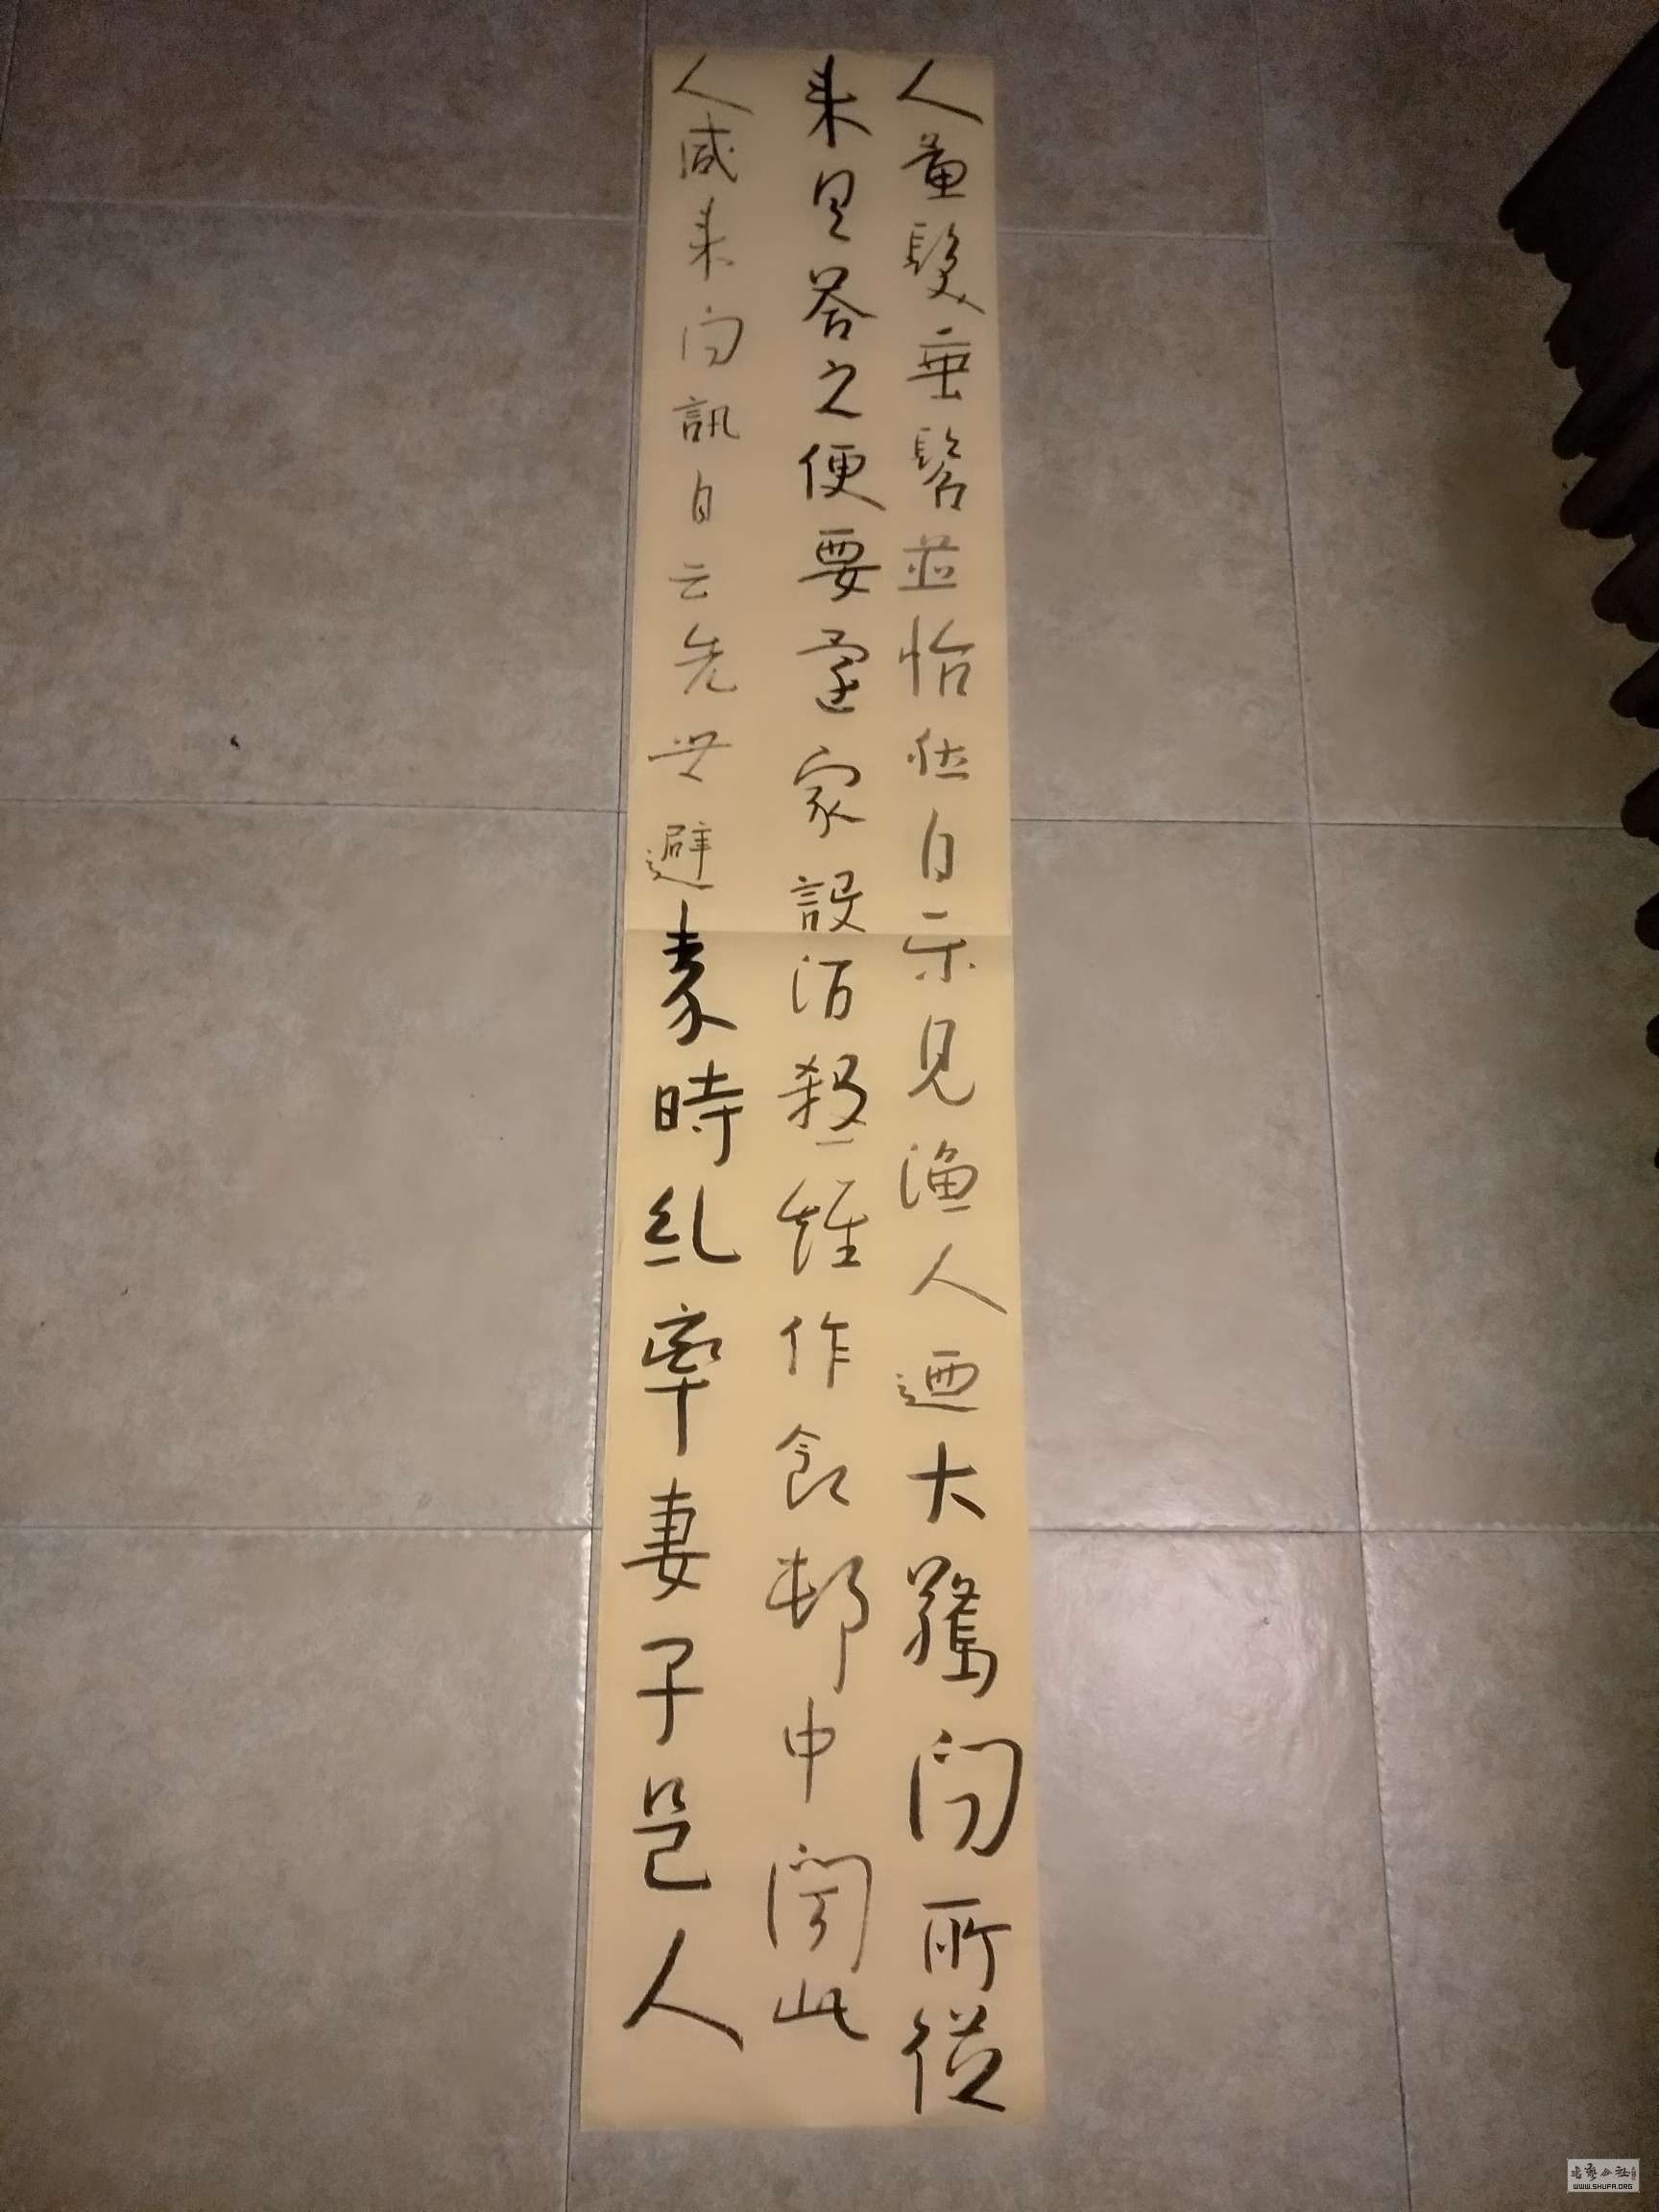 人黄髮垂髫並怡然自乐見漁人迺大驚問所從
来具答之便要還家設酒殺雞作食邨中聞此
人咸来問訊自云先世避秦時亂率妻子邑人
WWW.SHUFA.ORG